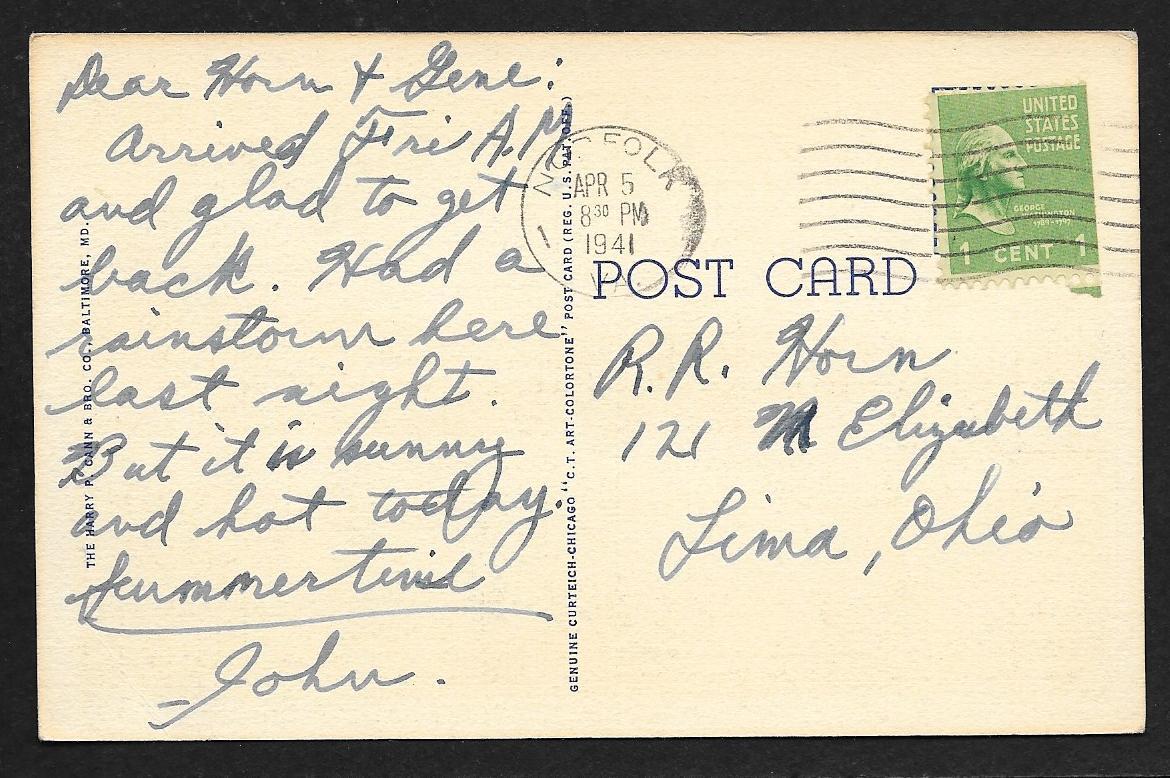 Dear Horn & Gene:
Arrived Fri A.M
and glad to get
back. Had a
rainstorm here
last night.
But it is sunny
and hot today.
Summertime
- John.
THE HARRY P. CANN & BRO. CO., BALTIMORE, MD.
GENUINE CURTEICH-CHICAGO "C.T. ART-COLORTONE" POST CARD (REG. U.S. PAT. OFF.)
NORFOLK
APR 5
8 30 PM
1941
VA
1
POST CARD
UNITED
STATES
POSTAGE
GEORGE
WASHINGTON
1789-1797
1 CENT 1
R.R. Horn
121 N Elizabeth
Lima, Ohio